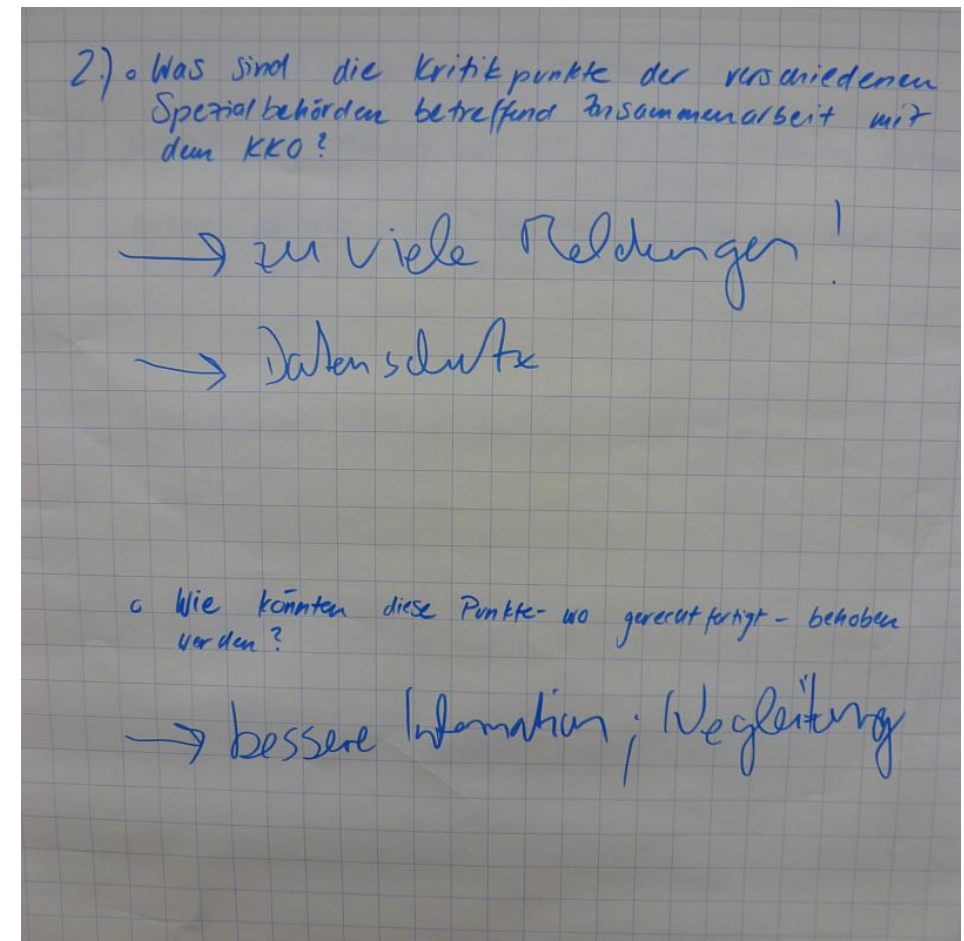 2.) • Was sind die Kritikpunkte der verschiedenen
Spezialbehörden betreffend Zusammenarbeit mit
dem KKO?
→ zu viele Meldungen!
→ Datenschutz
• Wie könnten diese Punkte - wo gerechtfertigt - behoben
werden?
→ bessere Information; Wegleitung